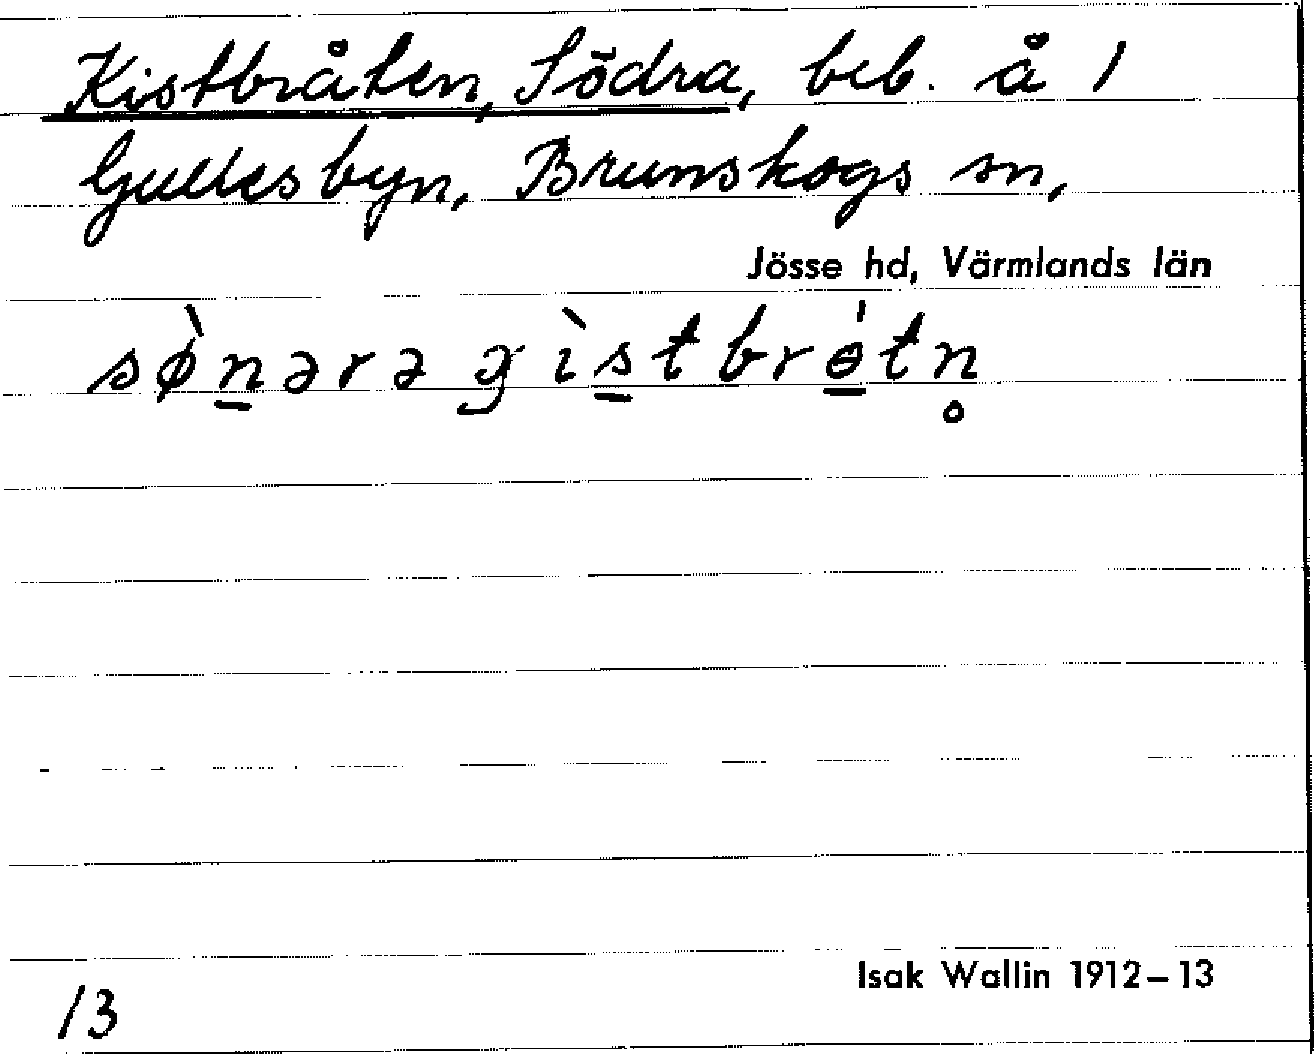 Kistbråten, Södra, beb. å 1
Gullesbyn, Brunskogs sn,
Jösse hd, Värmlands län
sø̀n̲ərə gìs̲tbrɵ̲́tn̥
Isak Wallin 1912–13
13